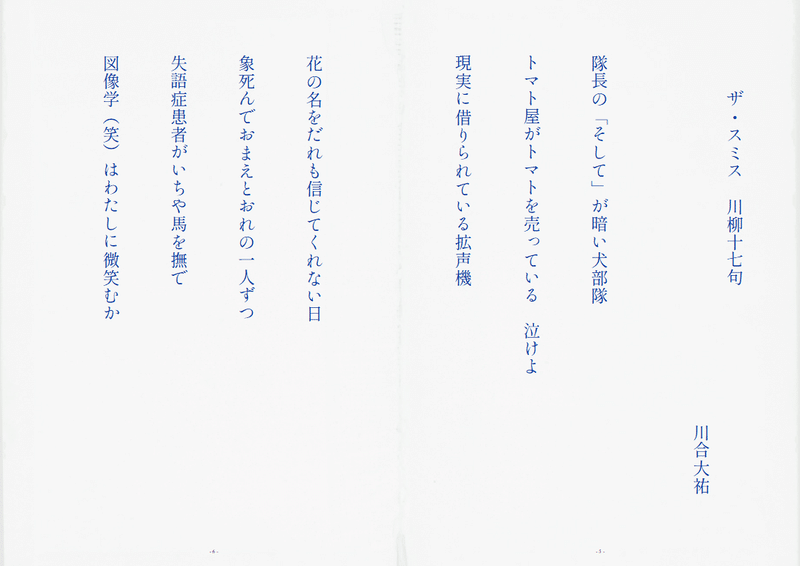 ザ・スミス　川柳十七句
川合大祐
隊長の「そして」が暗い犬部隊
トマト屋がトマトを売っている　泣けよ
現実に借りられている拡声機
- 5 -
花の名をだれも信じてくれない日
象死んでおまえとおれの一人ずつ
失語症患者がいちや馬を撫で
図像学（笑）はわたしに微笑むか
- 6 -